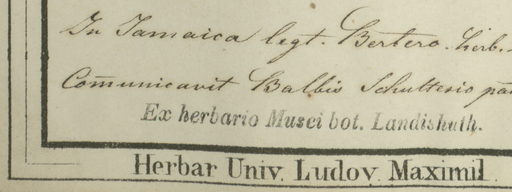 In Jamaica legt. Bertero. herb.
Com̄unicavit Balbis Schulterio pa
Ex herbario Musei bot. Landishuth.
Herbar Univ. Ludov. Maximil.